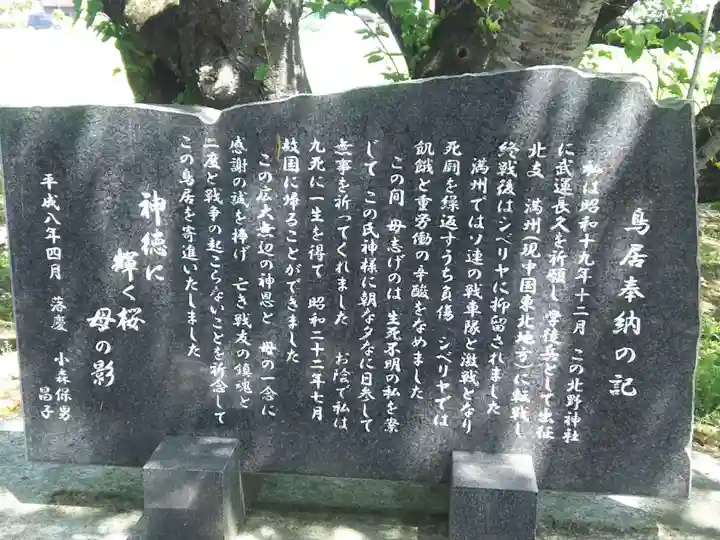 鳥居奉納の記
私は昭和十九年十二月 この北野神社
に武運長久を祈願し 学徒兵として出征
北支 満州(現中国東北地方)に転戦し
終戦後はシベリヤに抑留されました
満州ではソ連の戦車隊と激戦となり
死闘を繰返すうち負傷 シベリヤでは
飢餓と重労働の辛酸をなめました
この間 母志げのは 生死不明の私を案
じて この氏神様に朝な夕なに日参して
無事を祈ってくれました お陰で私は
九死に一生を得て 昭和二十二年七月
故国に帰ることができました
この広大無辺の神恩と 母の一念に
感謝の誠を捧げ 亡き戦友の鎮魂と
二度と戦争の起こらないことを祈念して
この鳥居を寄進いたしました
神徳に
輝く桜
母の影
平成八年四月 落慶 小森保男
昌子